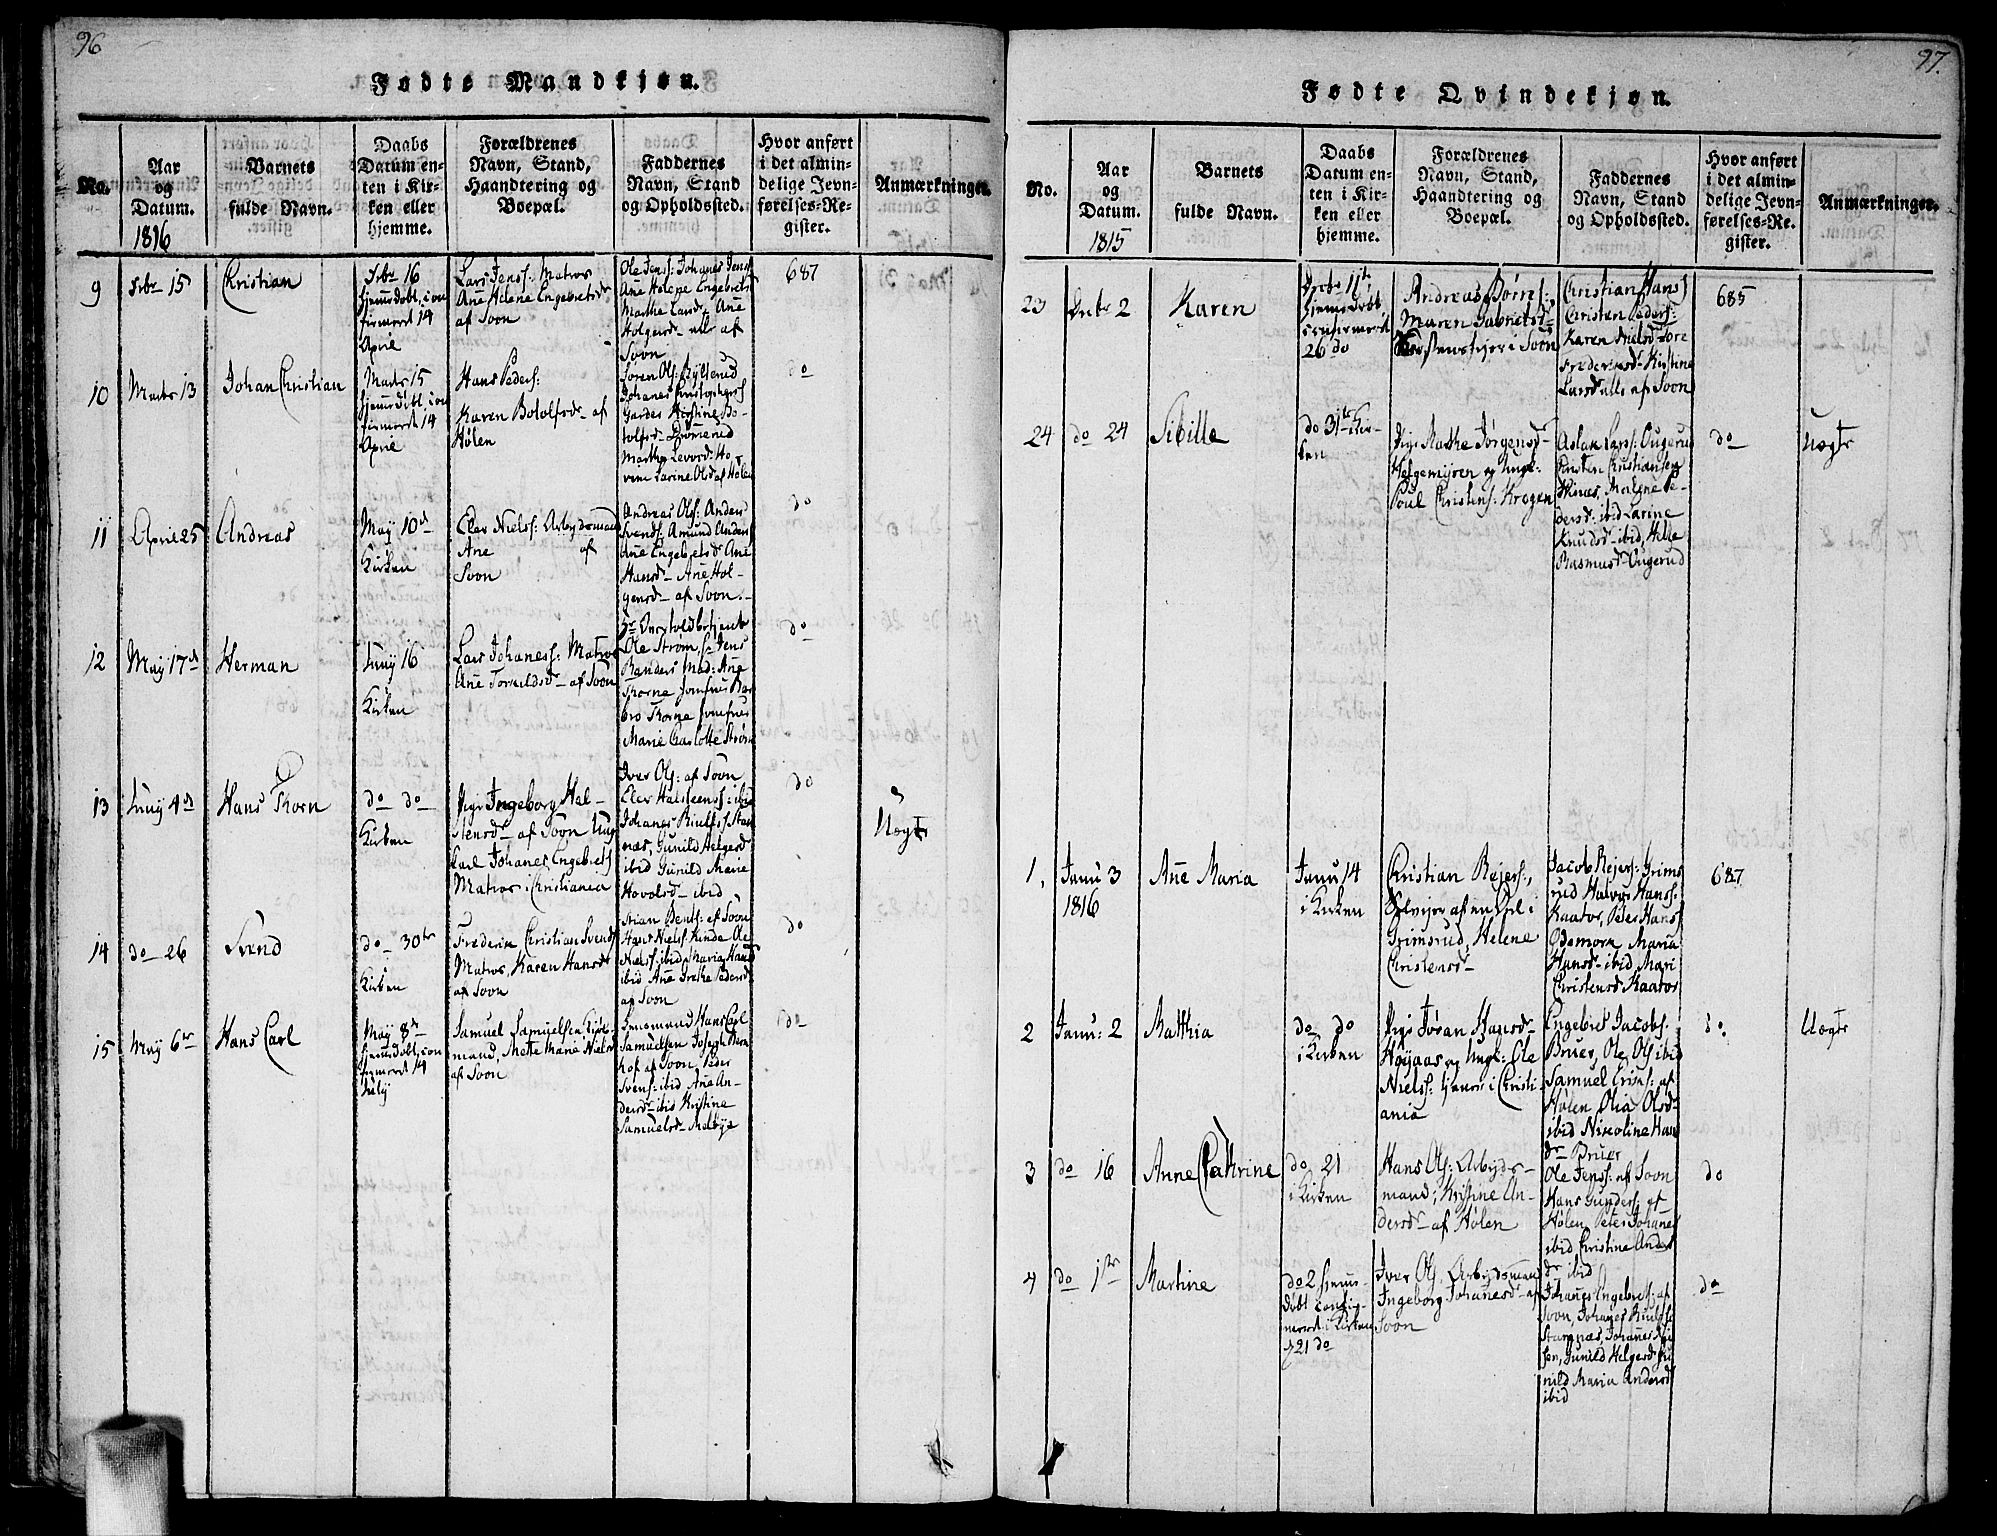 96
Fødte Mandkjøn.
No.
Aar
og
Datum.
1816
Barnets
fulde Navn.
Daabs
Datum en-
ten i Kir-
ken eller
hjemme.
Forældrenes
Navn, Stand,
Haandtering og
Boepæl.
Faddernes
Navn, Stand
og Opholdssted.
Hvor anført
i det almin-
delige Jevn-
førelses-Re-
gister.
Anmærkninger.
9
15
Christian
16
14
April
Lars Jenss: Matros
Ane Helene Engebretsd
af Soon
Ole Jenss: Johanes Jenss
Ane Helene Engebretsd
Marthe Ane
Holgersd af
Soon
687
10
Marts 13
Johan Christian
Marts 15
14
April
Hans Peders:
Karen Botolfsd af
Hølen
Søren Ols:
Johanes Christophers
Kirstine Bo-
tolfsd
Marthe
Larine Olsd af Hølen
do
11
April 25
Andreas
May 10d
Kirken
Eler Niels: Arbejdsmand
Ane af
Soon
Andreas Ols: Anders
Svends: Amund Anders
Ane Engebretsd Ane
Hansd Ane Hol-
gersd af Soon.
do
12
May 17d
Herman
Juny 16
Kirken
Lars Johaness: Matros
Ane Torkildsd af Soon
Ole Strøm, Jens
Randers Mad: Ane
Thorne Jomfrue Bar
bro Thorne Jomfrue
Marie Charlotte Strøm
do
13
Juny 4d
Hans Thorn
do do
Kirken
Pige Ingeborg Hal-
stensd af Soon Ung
Carl Johanes Engebrets
Matros i Christiania
Iver Ols: af Soon
Eler Halsteens: ibid
Johanes Stam
næs, Gunild Helgersd
ibid Gunild Marie
ibid
do
Uægte
14
do 26
Svend
do 30te
Kirken
Frederik Christian Svends
Matros, Karen Hansd
af Soon
Stian Bents: af Soon
Hans Niels: Kinde Ole
Niels: ibid Maria Hansd
ibid Ane Grethe Pedersd
af Soon
do
15
May 6te
Hans Carl
May 8de
14
July
Samuel Samuelsen
mand, Mette Marie Nielsd
af Soon
Hans Carl
Samuelsen Joseph Bern
hof af Soon Peder
Svens: ibid Ane An-
dersd ibid Kristine
Samuelsd Melbye
do
97.
Fødte Qvindekjøn.
No.
Aar
og
Datum.
1815
Barnets
fulde Navn.
Daabs
Datum en-
ten i Kir-
ken eller
hjemme.
Forældrenes
Navn, Stand,
Haandtering og
Boepæl.
Faddernes
Navn, Stand
og Opholdssted.
Hvor anført
i det almin-
delige Jevn-
førelses-Re-
gister.
Anmærkninger.
23
2
Karen
11te
26 do
Andreas
Maren Gabrielsd
i Soon
Christian Hans
Christen Peders:
Karen Nielsd
Fredriksd Kirstine
Larsd alle af Soon
685
24
do 24
Sibille
do 31te Kir-
ken
Pige Mathe Jørgensd
Helgemyren og Ungk:
Poul Christens: Krogen
Aslak Larss: Ougerud
Christen Christiansen
Malene Pe-
dersd: ibid Larine
Knudsd ibid, Helle
Rasmusd Ougerud
do
Uægte
1.
Janu 3
1816
Ane Maria
Janu 14
i Kirken
Christian Rejers:,
Selvejer af en Del i
Grimsrud, Helene
Christensd
Jacob Rejers: Grims
rud Halvor Hanss:
Kaatos, Peter Hans
Odemork Maria
Hansd ibid, Mari
Christensd Kaatos
687
2
Janu: 2
Matthia
do do
i Kirken
Pige Jøran Hansd
Høyaas og Ungk: Ole
Niels: tjener i Christi-
ania
Engebret Jacobs:
Bruer, Ole Ols ibid
Samuel Erics: af
Hølen Olia Olsd
ibid Nicoline Han
dr Bruer
do.
Uægte
3
do 16
Anne Cathrine
do 21
i Kirken
Hans Ols: Arbejds-
mand, Kristine An-
dersd af Hølen
Ole Jenss: af Soon
Hans Gunders: af
Hølen, Peter Johanes
ibid, Christine Anders
dr ibid
do
4
do 1ste
Martine
do 2 hjemme-
døbt confir-
meret i Kirken
21 do
Iver Ols Arbejdsmand
Ingeborg Johanesd af
Soon
Johanes Engebrets: af
Soon, Johanes
Stamnæs, Johanes
Gunild Helgersd Gu
nild Maria Andersd
ibid
do